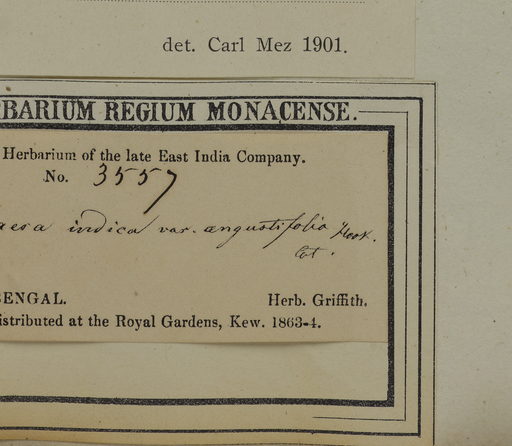 det. Carl Mez 1901.
RBARIUM REGIUM MONACENSE.
Herbarium of the late East India Company.
No. 3557
aesa indica var. angustifolia Hook.
Cat.
BENGAL. Herb. Griffith.
istributed at the Royal Gardens, Kew. 1863-4.